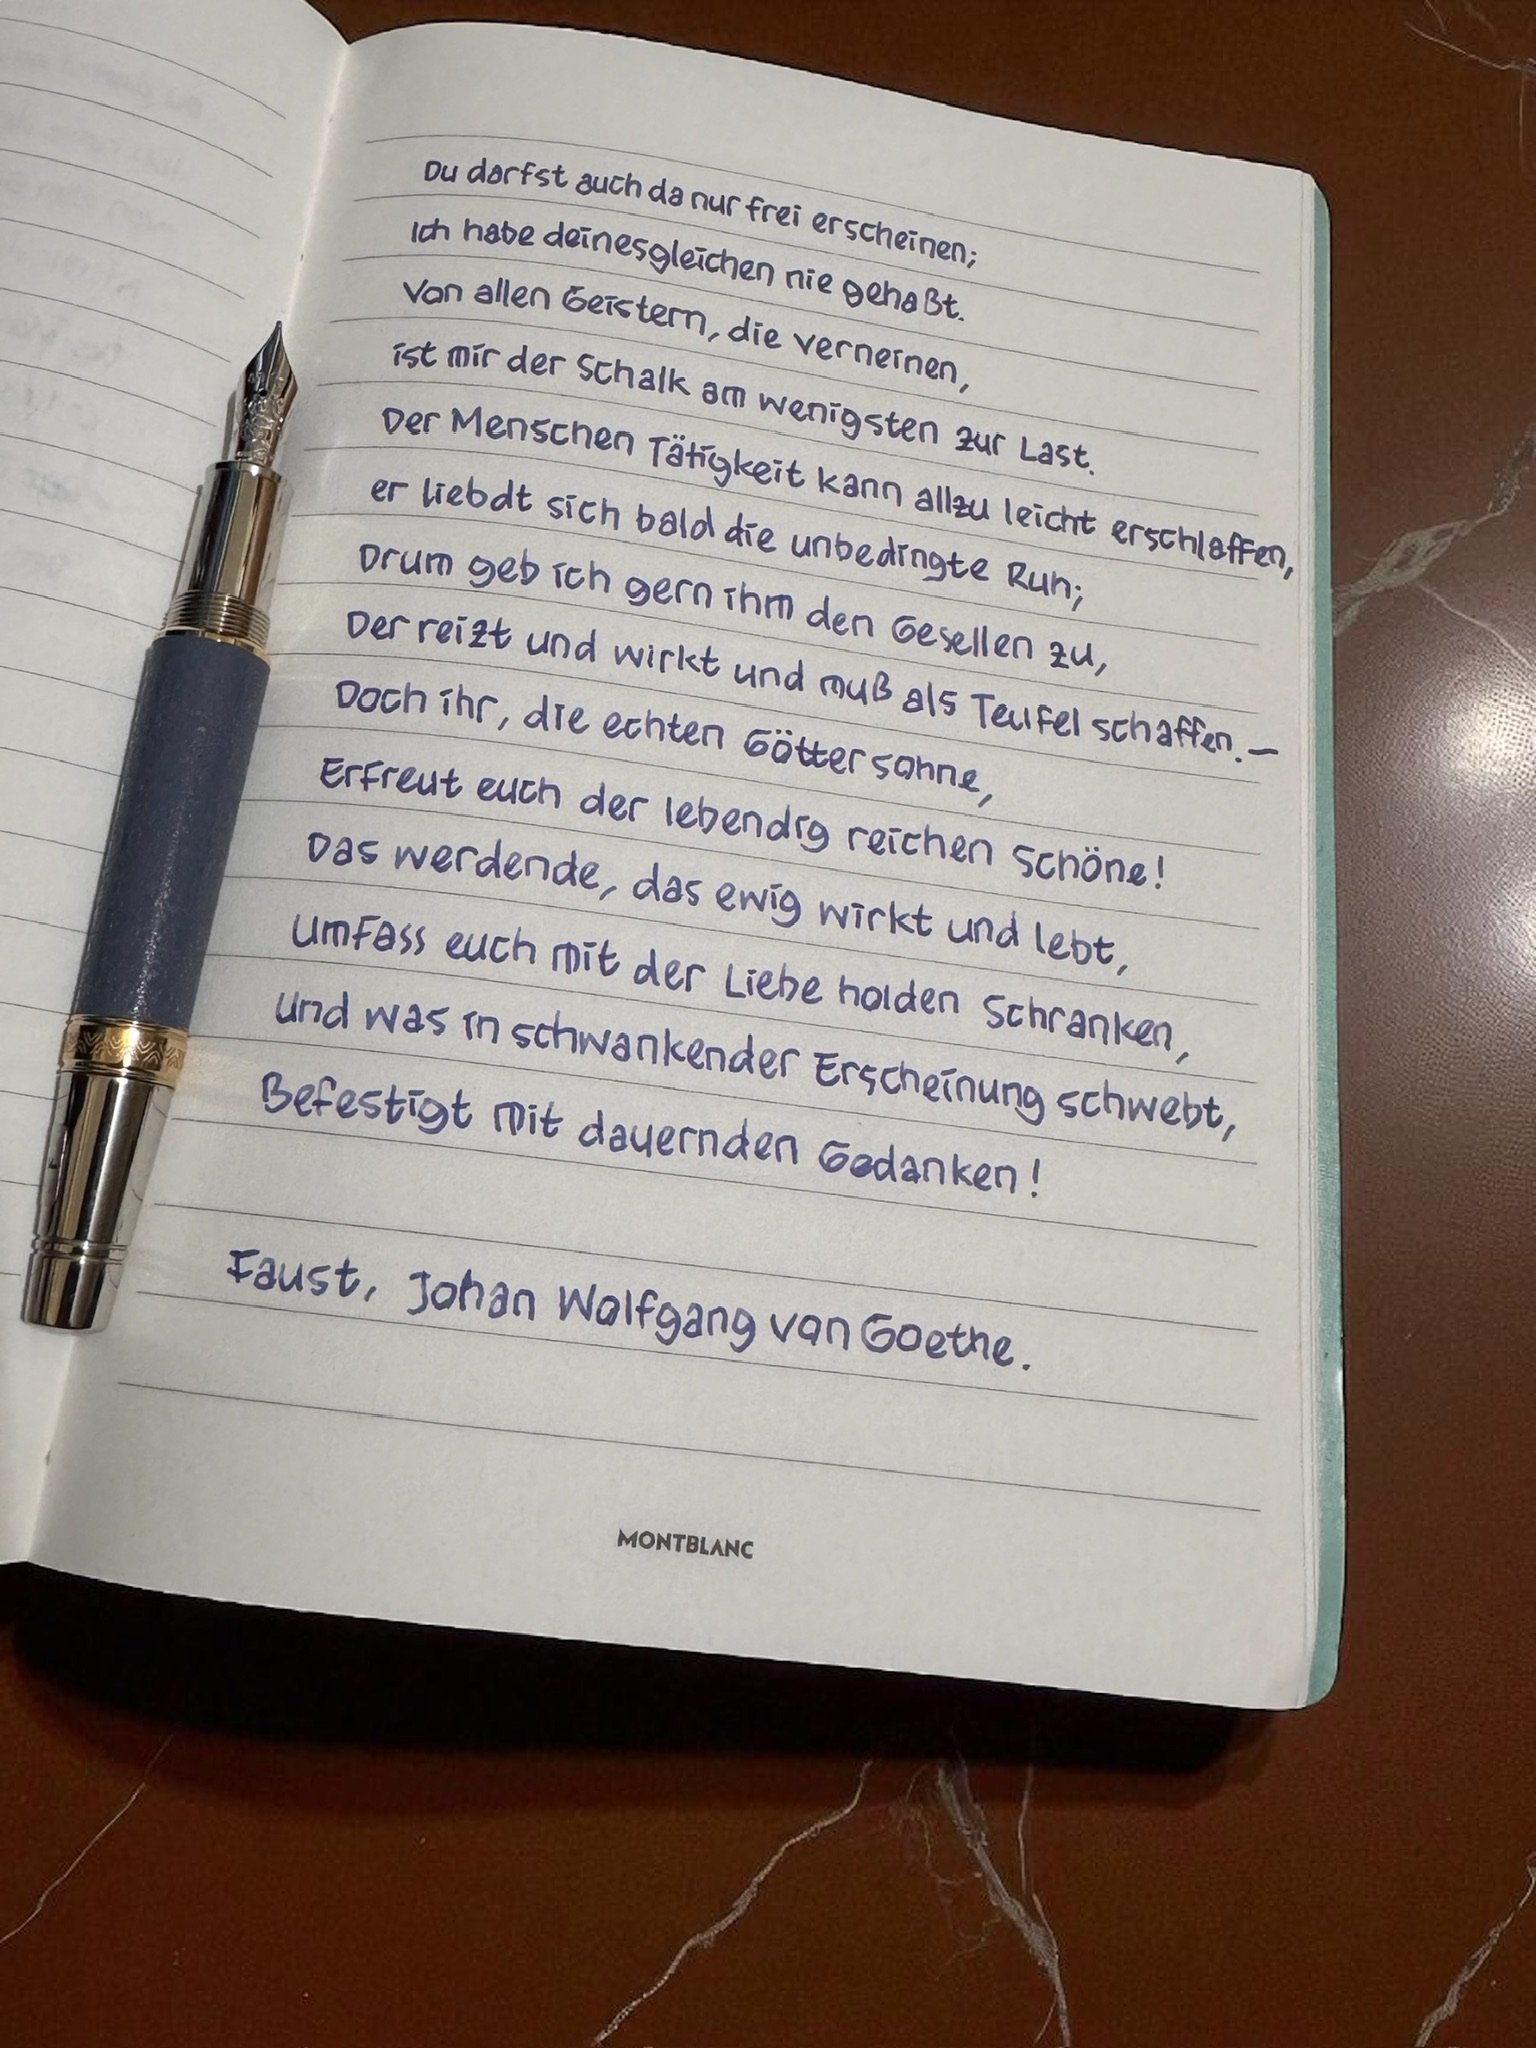 Du darfst auch da nur frei erscheinen;
Ich habe deinesgleichen nie gehaßt.
Von allen Geistern, die verneinen,
ist mir der Schalk am wenigsten zur Last.
Der Menschen Tätigkeit kann allzu leicht erschlaffen,
er liebdt sich bald die unbedingte Ruh;
Drum geb ich gern ihm den Gesellen zu,
Der reizt und wirkt und muß als Teufel schaffen.—
Doch ihr, die echten Göttersohne,
Erfreut euch der lebendig reichen Schöne!
Das werdende, das ewig wirkt und lebt,
Umfass euch mit der Liebe holden Schranken,
Und was in schwankender Erscheinung schwebt,
Befestigt mit dauernden Gedanken!
Faust, Johan Wolfgang von Goethe.
MONTBLANC